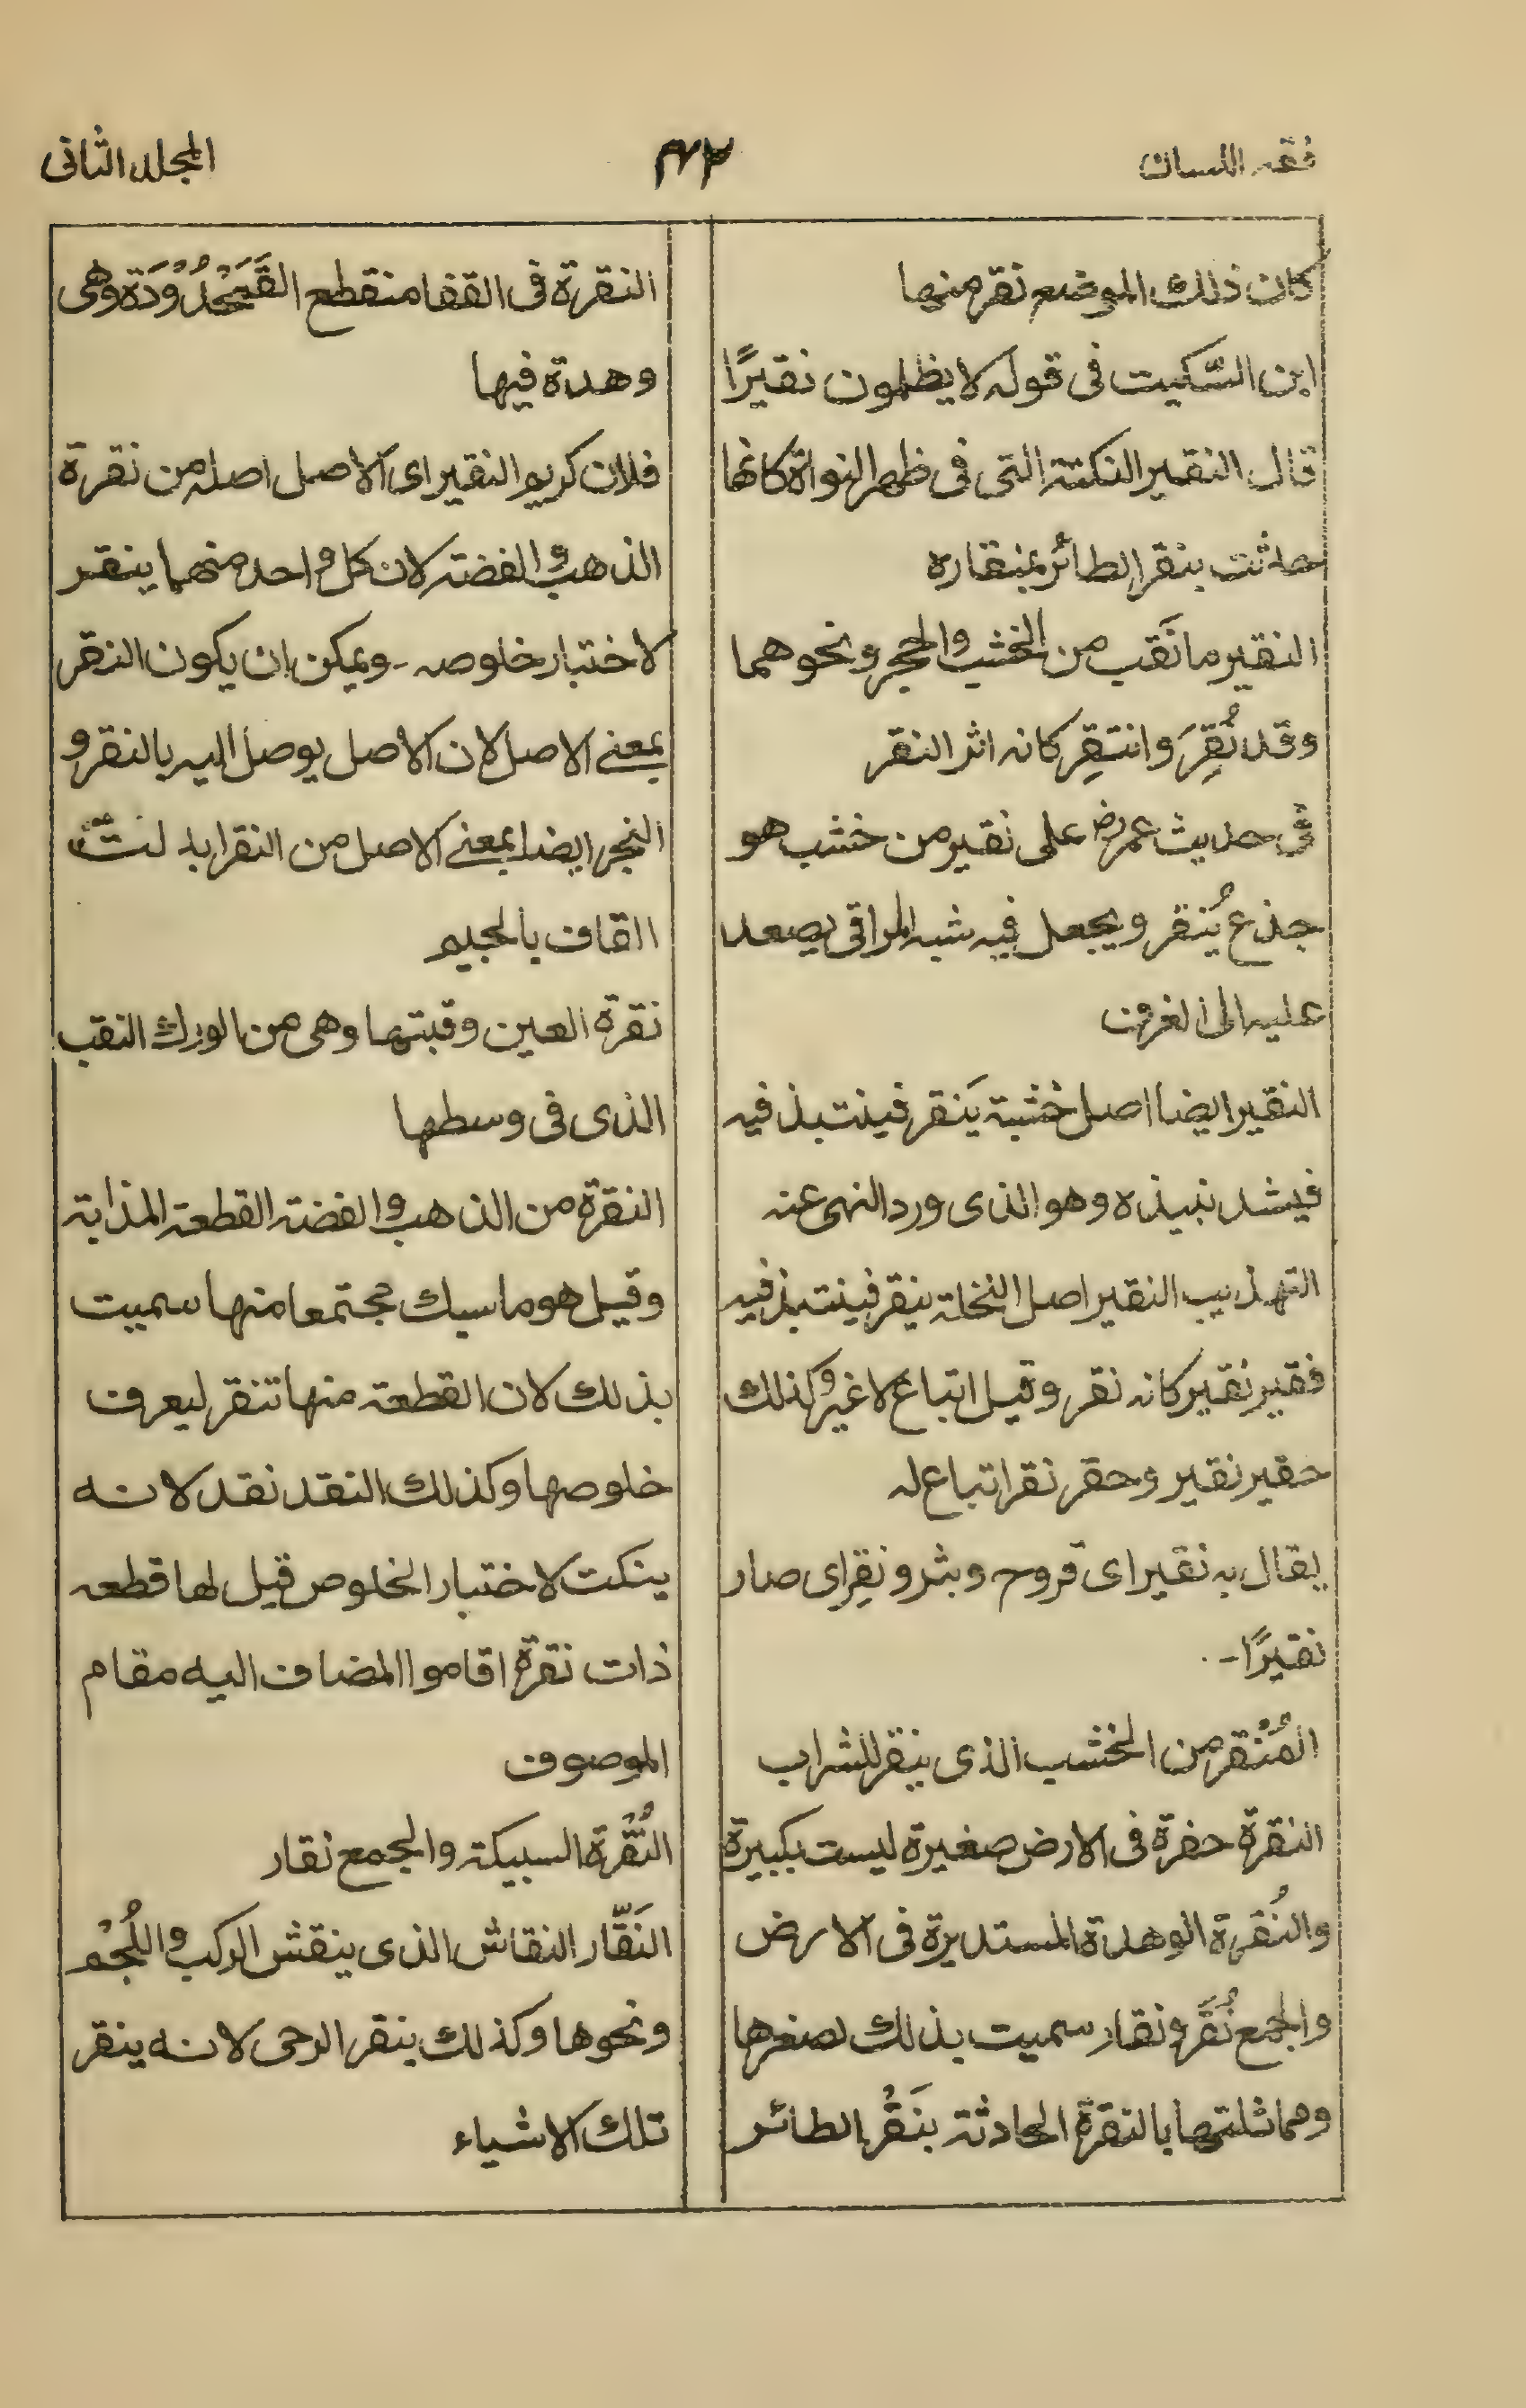 فقه اللسان
المجلد الثانى
كان ذلك الموضع نقر منها
ابن السّكيت فى قوله لا يظلمون نقيرًا
قال النقير النكتة التى فى ظهر النواة كانها
حدثت بنقر الطائر بمنقاره
النقير ما نَقب من الخشب والحجر ونحوهما
وقد نُقِرَ وانتقِر كانه اثر النقر
فى حديث عمر رض على نقير من خشب هو
جذع يُنقر ويجعل فيه شبه المراقى يصعد
عليه الى الغرف
النقير ايضا اصل خشبة يَنقر فينتبذ فيه
فيشد نبيذه وهو الذى ورد النهى عنه
التهذيب النقير اصل النخلة ينقر فينتبذ فيه
فقير نقير كانه نقر وقيل اتباع لا غير وكذلك
حقير نقير وحقر نقر اتباع له
يقال به نقير اى قروح وبثر ونقِر اى صار
نقيرًا۔
المُنْقر من الخشب الذى ينقر للشراب
النقرة حفرة فى الارض صغيرة ليست بكبيرة
والنُقرة الوهدة المستديرة فى الارض
والجمع نُقَر ونقار سميت بذلك لصغرها
ومماثلتها بالنقرة الحادثة بنَقْر الطائر
النقرة فى القفا منقطع القَمَحْدُوْدَة وهى
وهدة فيها
فلان كريم النقير اى الاصل اصله من نقرة
الذهب والفضة لان كل واحد منهما ينقر
لاختبار خلوصه ۔ ويمكن ان يكون النقر
بمعنى الاصل لان الاصل يوصل اليه بالنقر و
النجر ايضا بمعنى الاصل من النقر ابدلت
القاف بالجيم
نقرة العين وقبتها وهى من الورك النقب
الذى فى وسطها
النقرة من الذهب والفضة القطعة المذابة
وقيل هو ما سبك مجتمعا منها سميت
بذلك لان القطعة منها تنقر ليعرف
خلوصها وكذلك النقد نقد لانه
ينكت لاختبار الخلوص قيل لها قطعه
ذات نقرة اقاموا المضاف اليه مقام
الموصوف
النُّقْرة السبيكة والجمع نقار
النَقّار النقاش الذى ينقش الركب واللُجْم
ونحوها وكذلك ينقر الرحى لانه ينقر
تلك الاشياء